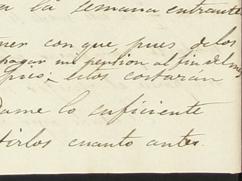 en la semana entrante
ner con que, pues de los
pagar mi pension al fin del mes
estos costarán
Dame lo suficiente
tirlos cuanto antes.